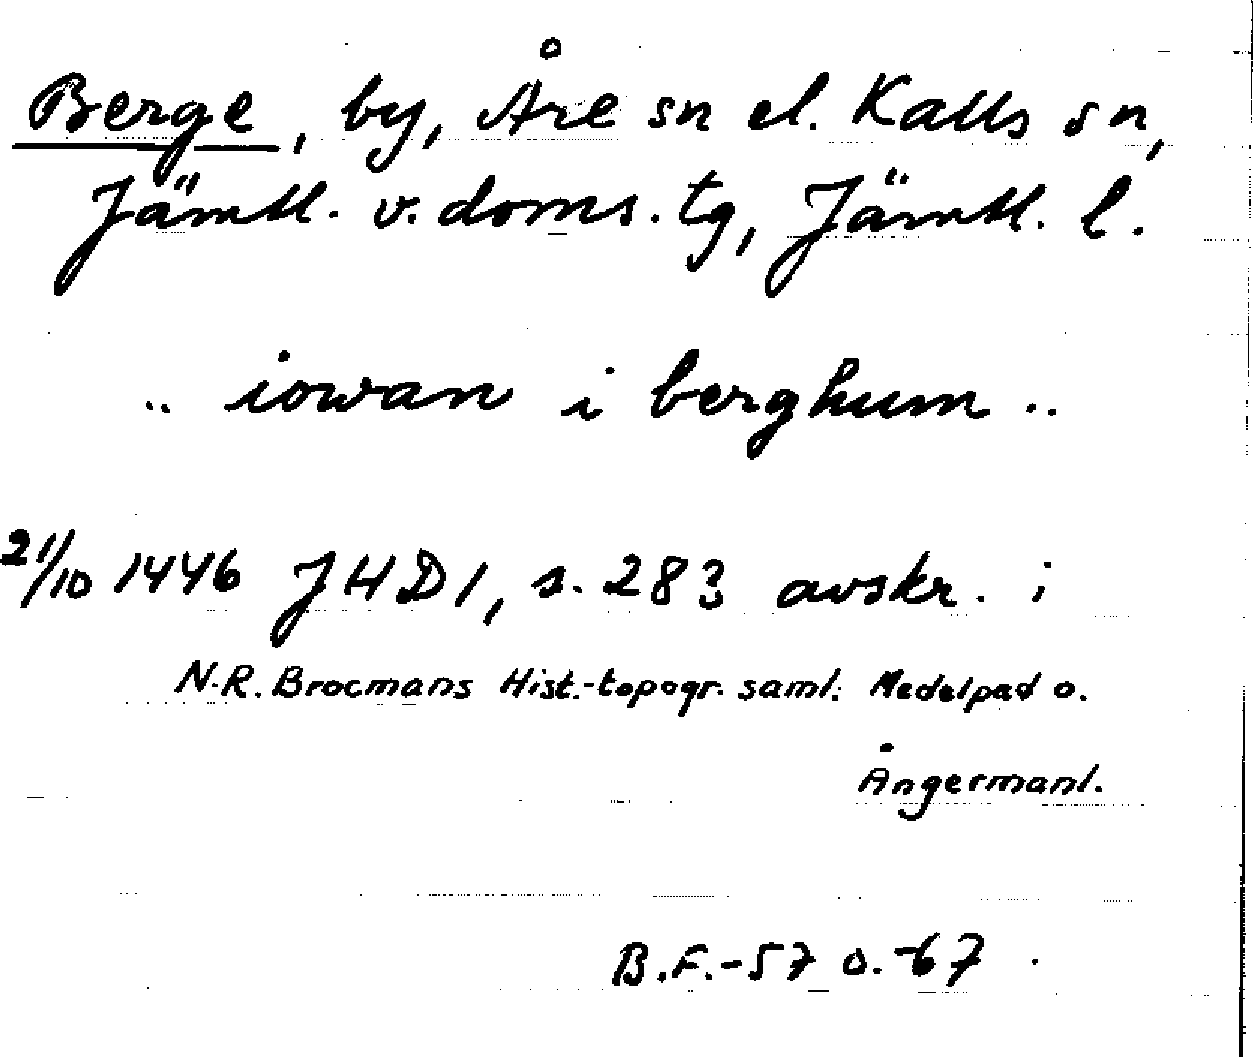 Berge, by, Åre sn el. Kalls sn,
Jämtl. v. doms. tg, Jämtl. l.
.. iowan i berghum ..
21/10 1446 JHD1, s. 283 avskr. i
N.R. Brocmans Hist.-topogr. saml. Medelpad o.
Ångermanl.
B.F.-57 o. -67